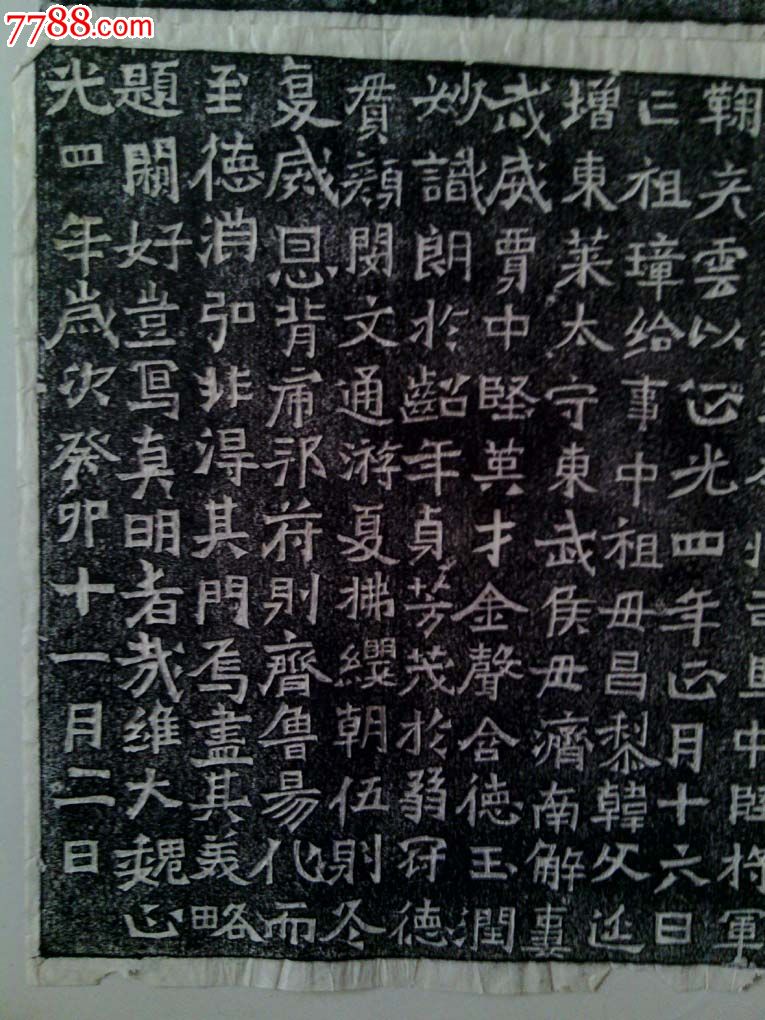 中堅將軍
鞠彦雲以正光四年正月十六日
亡祖璋给事中祖毋昌黎韓父延
增東萊太守東武侯毋濟南解妻
武威賈中堅英才金聲含德玉潤
妙識朗於齠年貞芳茂於弱冠德
貫顔閔文通游夏拂纓朝伍則冬
复威恩背虎邦符則齊魯易化而
至德消弘非得其門焉盡其美略
題闕好豈寫真明者哉維大魏正
光四年歲次癸卯十一月二日
7788.com